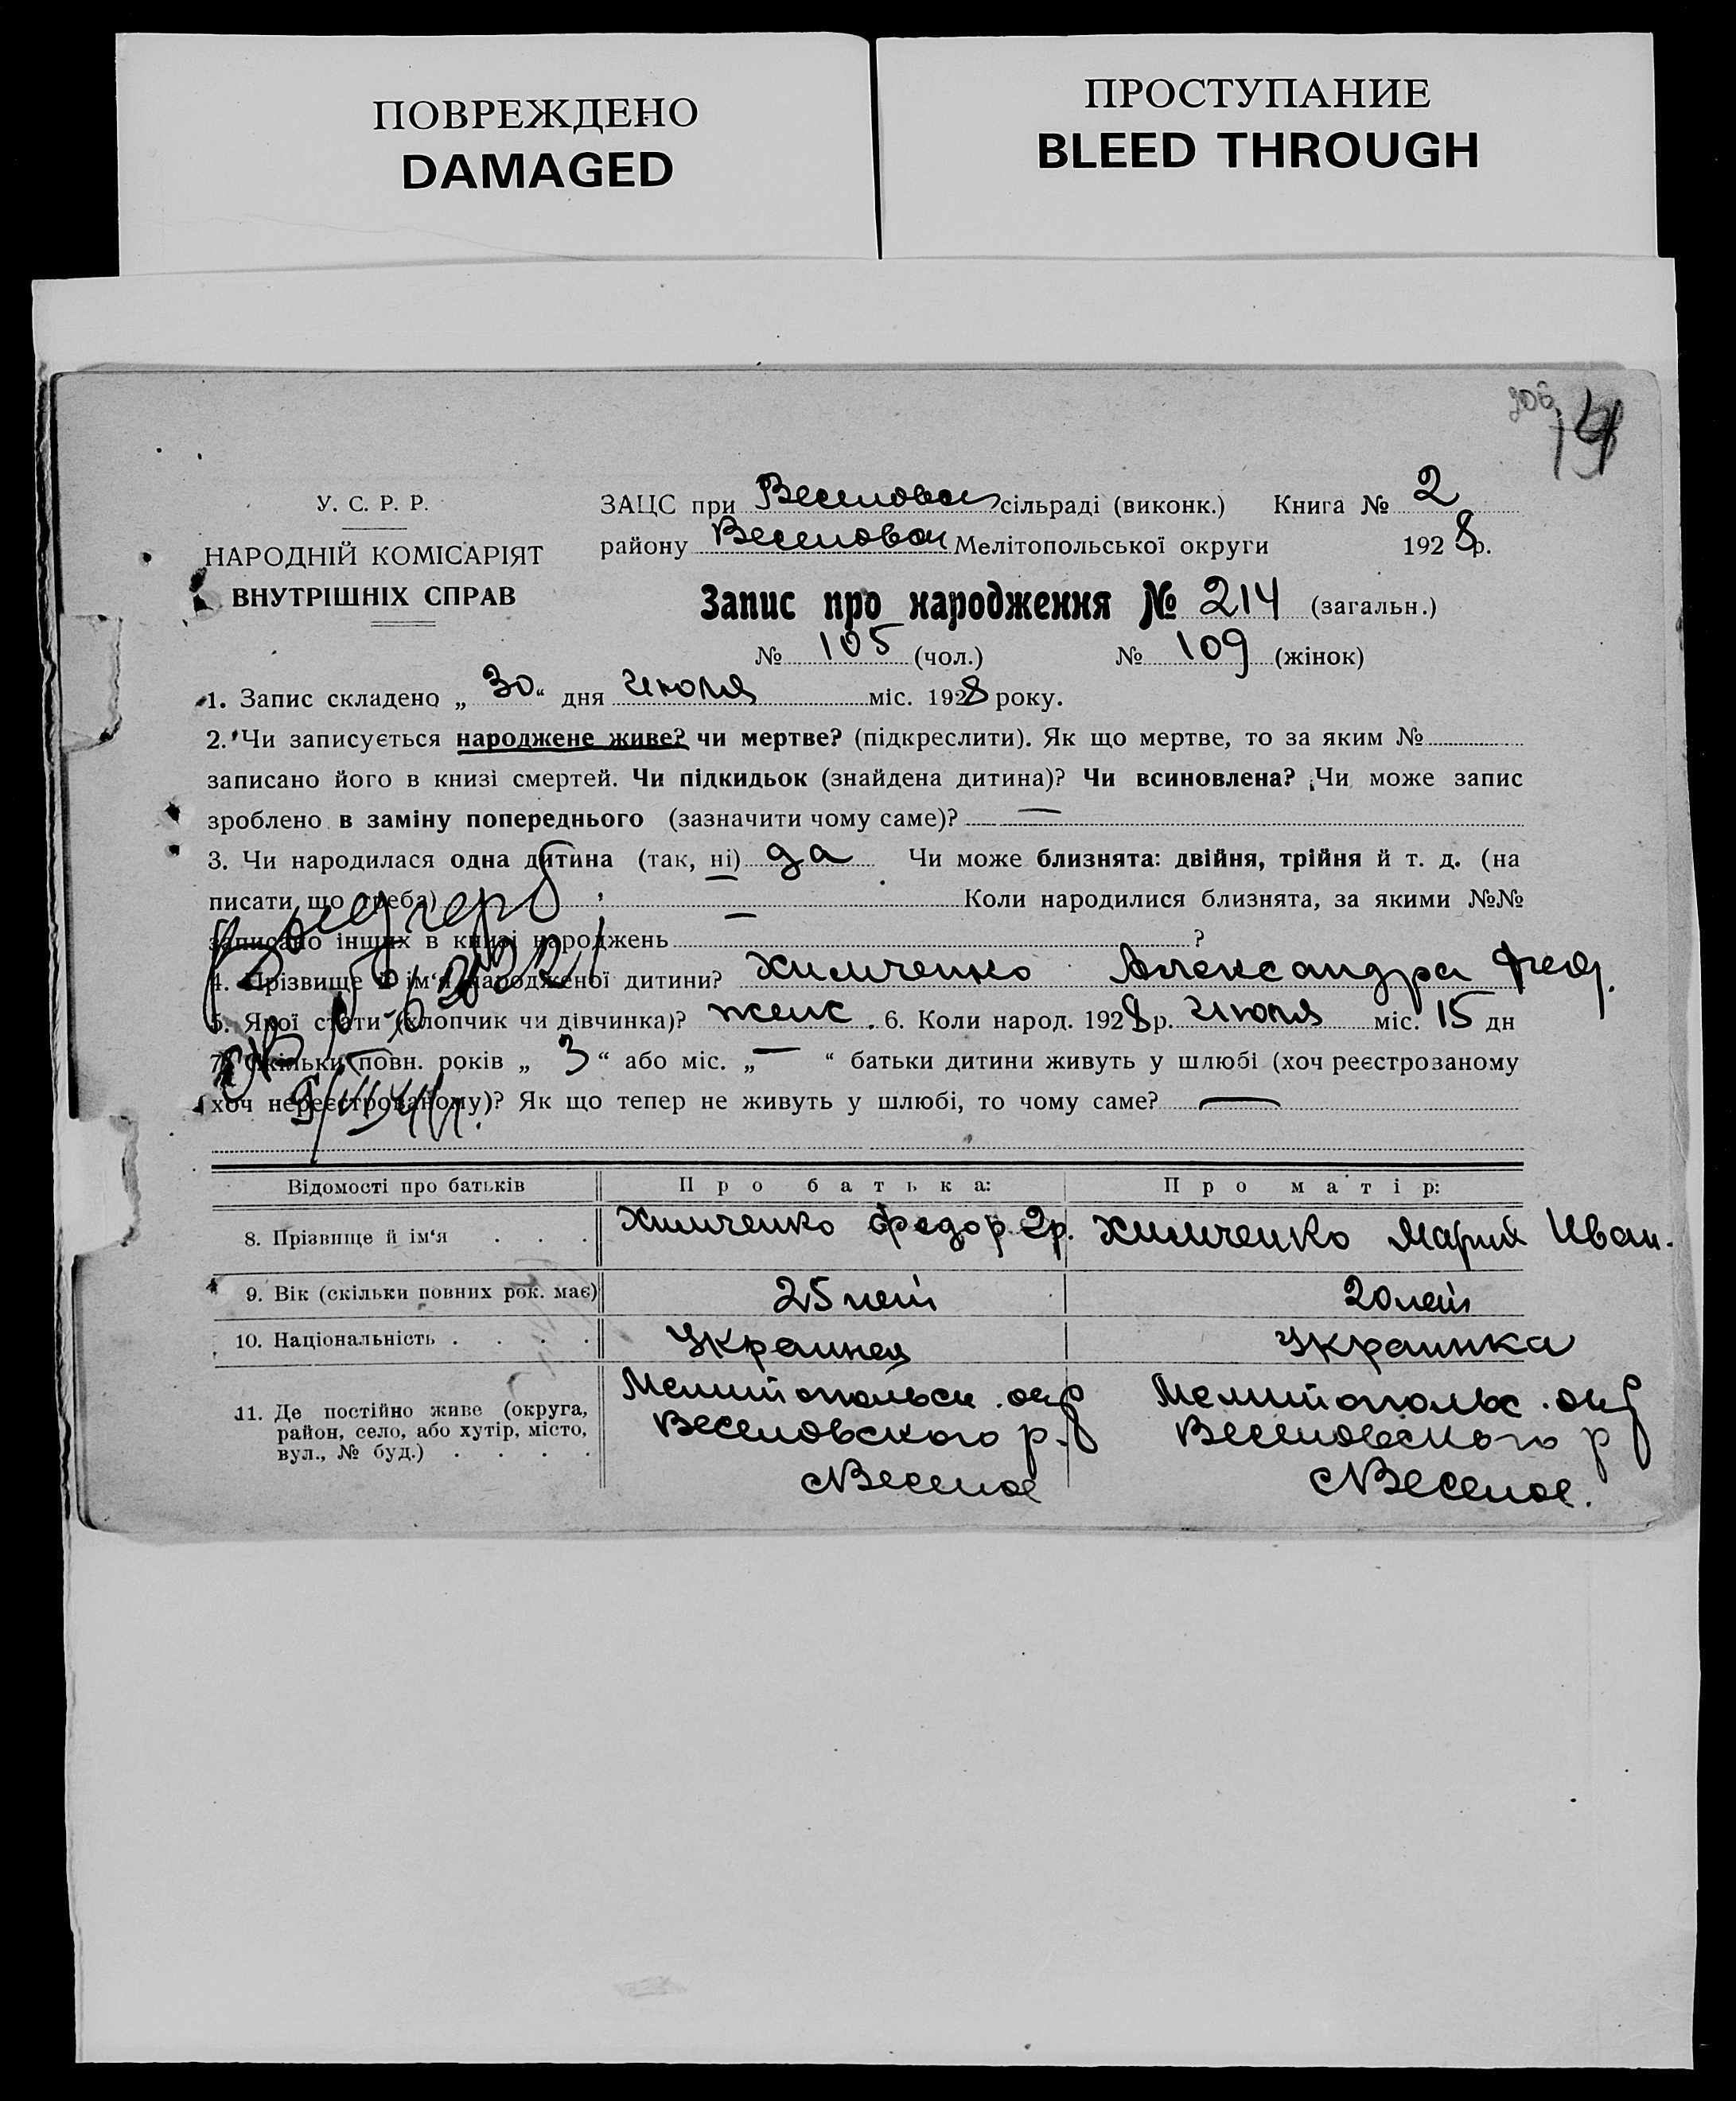 ПОВРЕЖДЕНО
DAMAGED
ПРОСТУПАНИЕ
BLEED THROUGH
306
У. С. Р. Р.
НАРОДНІЙ КОМІСАРІЯТ
ВНУТРІШНІХ СПРАВ
ЗАЦС при Веселовск сільраді (виконк.) Книга № 2
району Веселовск Мелітопольської округи 1928 р.
Запис про народження № 214 (загальн.)
№ 105 (чол.) № 109 (жінок)
1. Запис складено „ 30 “ дня Июля міс. 1928 року.
2. Чи записується народжене живе? чи мертве? (підкреслити). Як що мертве, то за яким №
записано його в книзі смертей. Чи підкидьок (знайдена дитина)? Чи всиновлена? Чи може запис
зроблено в заміну попереднього (зазначити чому саме)? —
3. Чи народилася одна дитина (так, ні) да Чи може близнята: двійня, трійня й т. д. (на
писати що треба) — Коли народилися близнята, за якими №№
записано інших в книзі народжень ?
4. Прізвище й ім‘я народженої дитини? Химченко Александра Фед.
5. Якої стати (хлопчик чи дівчинка)? женс. 6. Коли народ. 1928 р. Июля міс. 15 дн
7. Скільки повн. років „ 3 “ або міс. „ — “ батьки дитини живуть у шлюбі (хоч реєстрозаному
хоч нереєстрованому)? Як що тепер не живуть у шлюбі, то чому саме? —
Відомості про батьків Про батька: Про матір:
8. Прізвище й ім‘я . . . Химченко Федор Гр. Химченко Мария Иван.
9. Вік (скільки повних рок. має) 25 лет 20 лет
10. Національність . . . . Украинец Украинка
11. Де постійно живе (округа, район, село, або хутір, місто, вул., № буд.) . . . .
Мелитопольск. окр
Веселовского р.
с Веселое
Мелитопольс. окр
Веселовского р
с Веселое.